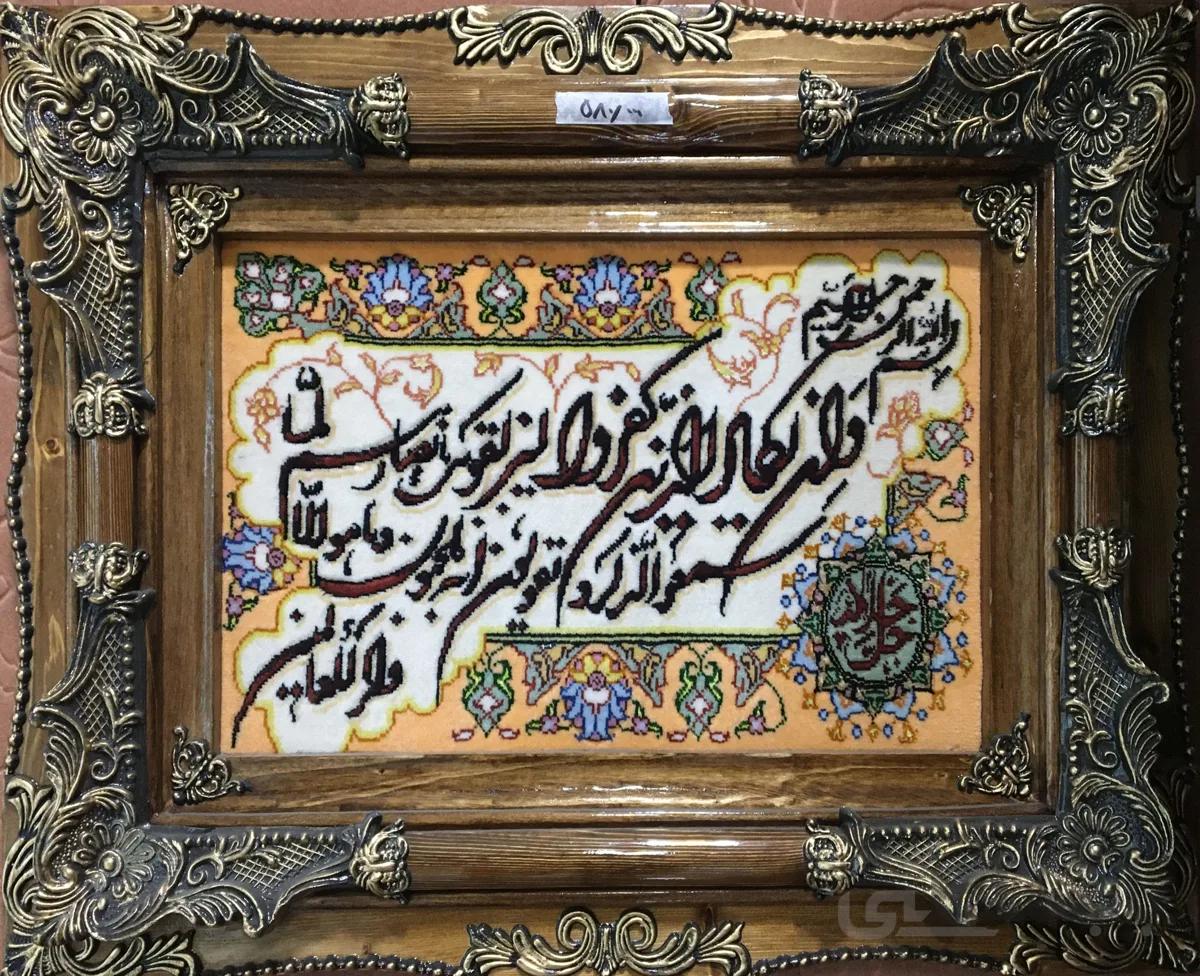 ۵۸۷۰۰
بسم الله الرحمن الرحیم
وان یکاد الذین کفروا لیزلقونک بابصارهم لما
سمعوا الذکر و یقولون انه لمجنون وما هو الا
ذکر للعالمین
جل جلاله